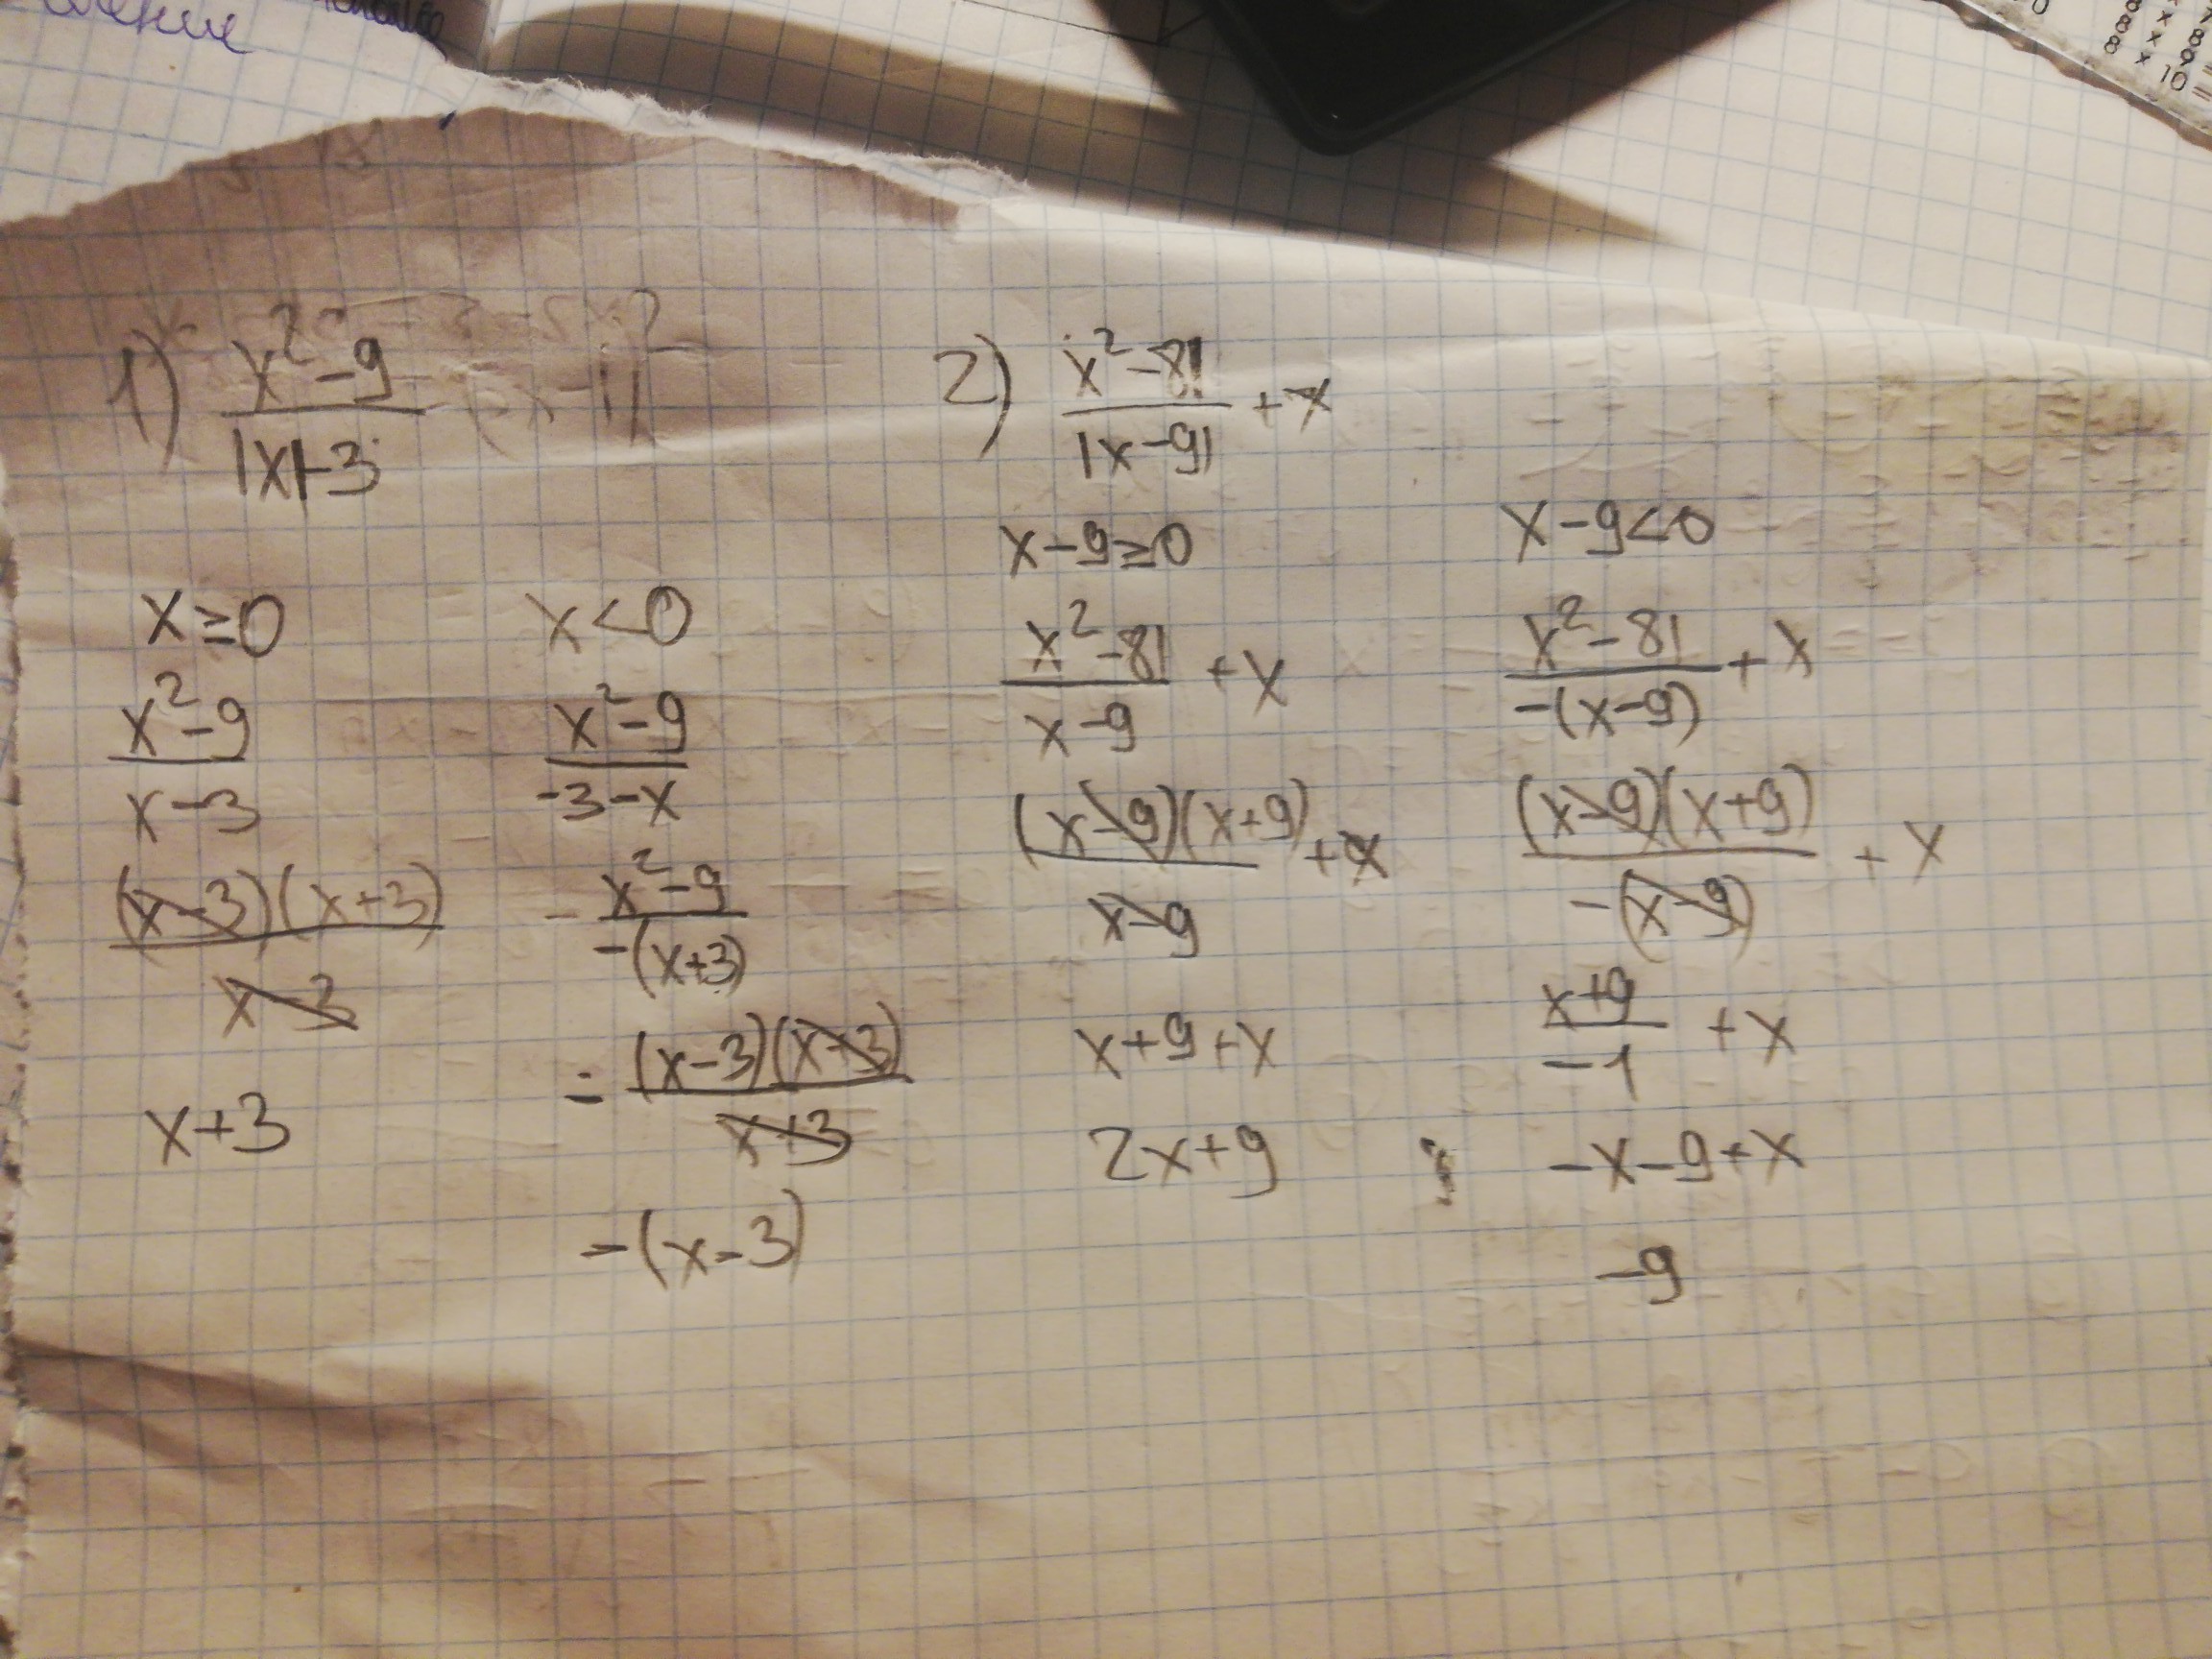 1) x²-9 / |x|-3
x≥0
x²-9 / x-3
(x-3)(x+3) / x-3
x+3
x<0
x²-9 / -3-x
- x²-9 / -(x+3)
= (x-3)(x+3) / x+3
-(x-3)
2) x²-81 / |x-9| +x
x-9≥0
x²-81 / x-9 +x
(x-9)(x+9) / x-9 +x
x+9+x
2x+9
x-9<0
x²-81 / -(x-9) +x
(x-9)(x+9) / -(x-9) +x
x+9 / -1 +x
-x-9+x
-9